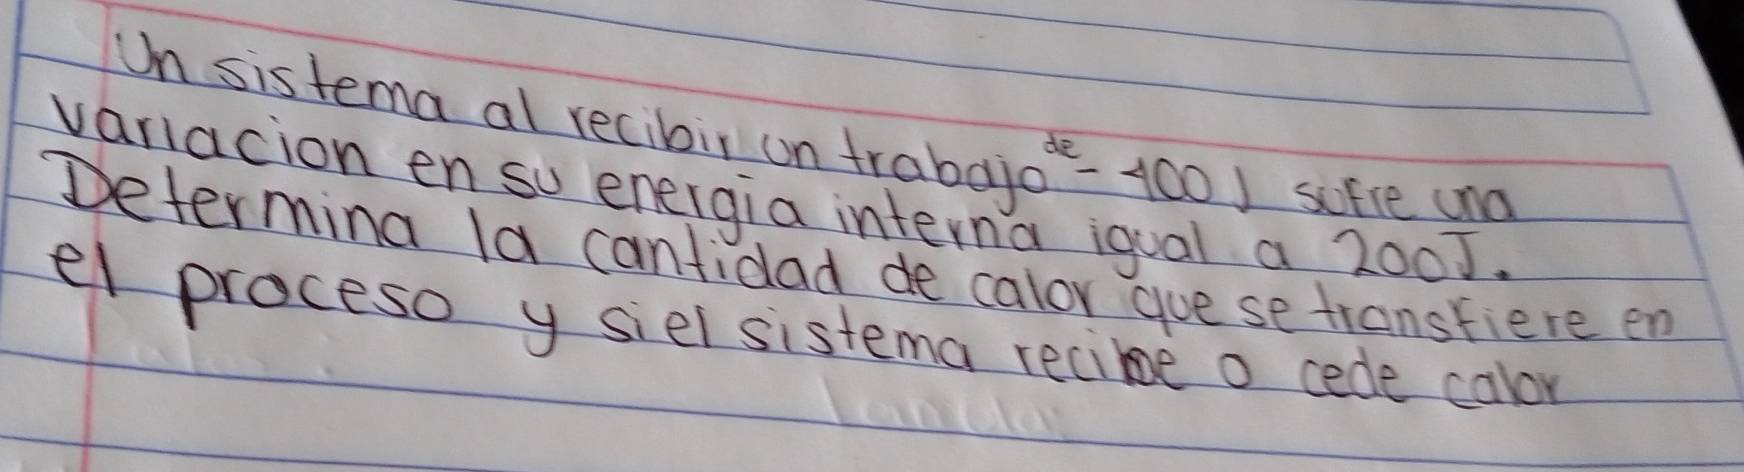 Un sistema al recibir un trabajo de - 100 J sufre una
variacion en su energia interna igual a 200J.
Determina la cantidad de calor que se transfiere en
el proceso y si el sistema recibe o cede calor